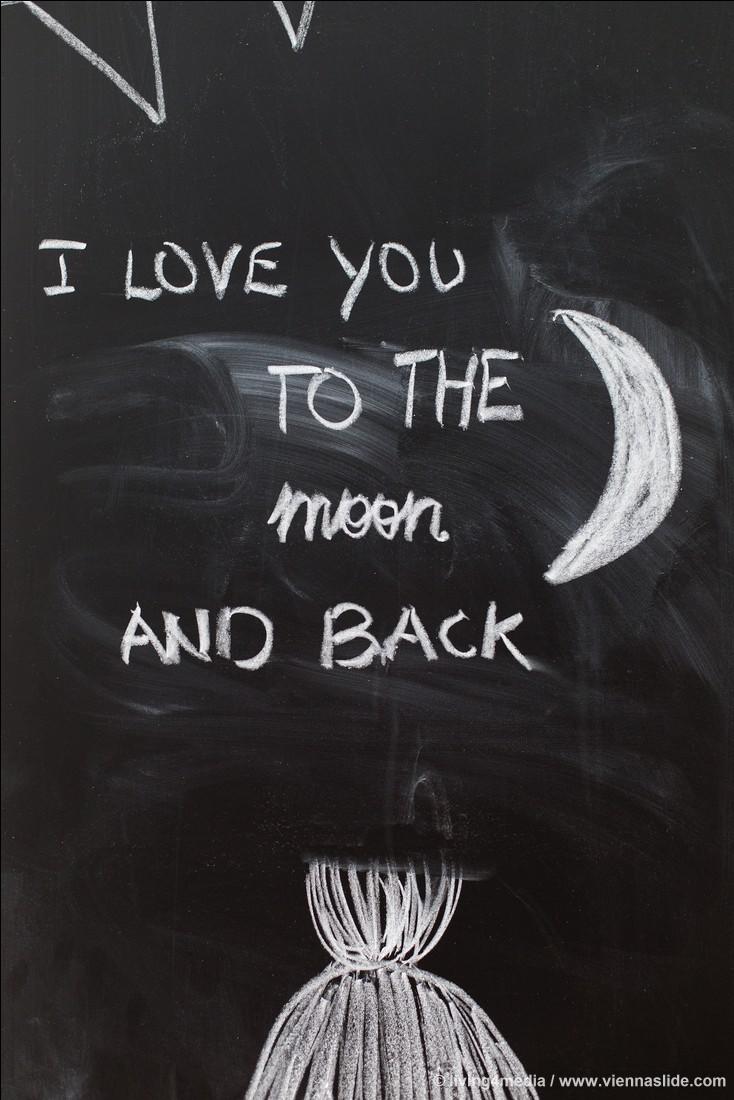 I LOVE YOU
TO THE
moon
AND BACK
© living4media / www.viennaslide.com